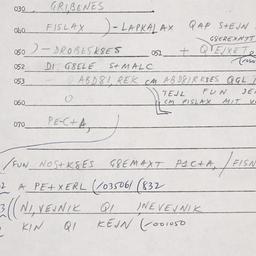 030 GRIBENES
040 FISLAX )-LAPKALAX QAP S+EJN
050 )-DROBLSKSES 051 + QTEJXET
052 DI GSELE S+MALC
ABDRI, REK CM ABDRIRKSES QGL
TEJL FUN
060 O CM FISLAX MIT
070 PE-C+A,
/FUN NOS+KSES GSEMAXT P1C+A, /FISN
A PE+XERL (/035061 (832
3 ((NI,VEJNIK QI INEVEJNIK
KIN QI KEJN (/001050